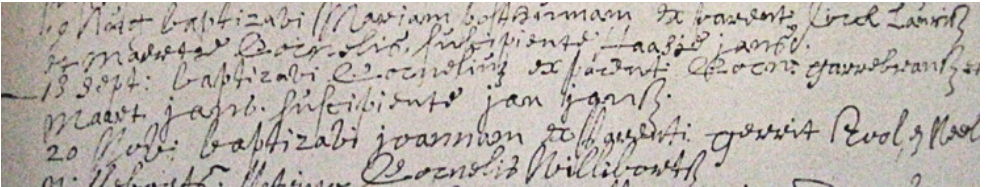 baptizavi Mariam posthumam ex parent: Lauritz
et Maertie Cornelis, suscipiente jans.
13 Sept: baptizavi Cornelius ex parent: Corn: garrebrantz et
Maart jans. suscipiente jan jansz.
20 Nov: baptizavi joannam ex parenti: gerrit Kool, & Neel
Cornelis Willibortz